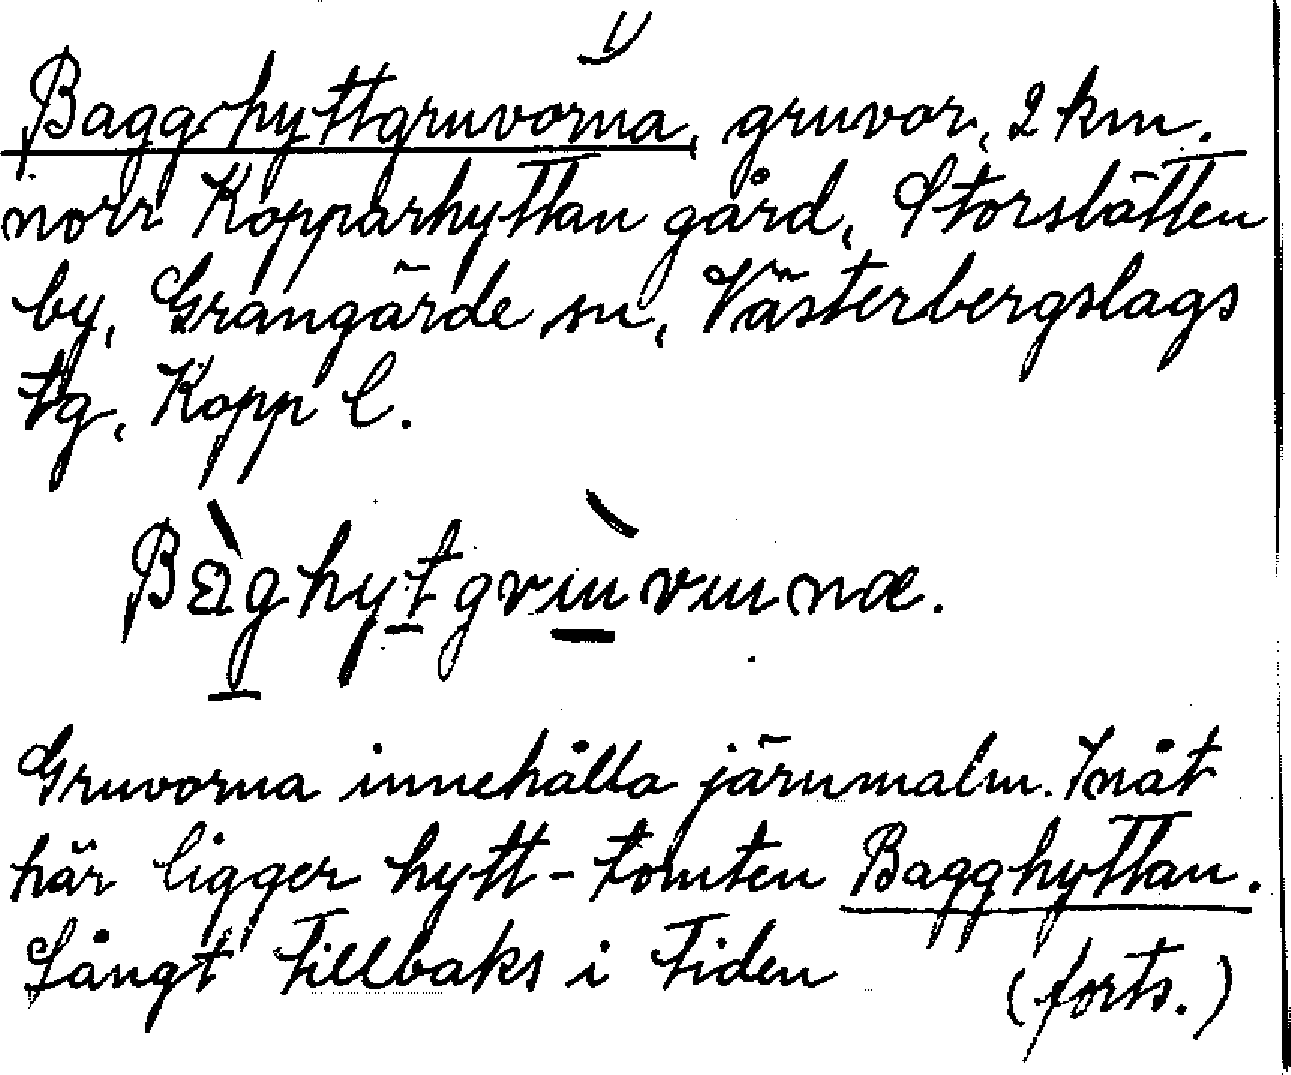 Bagghyttgruvorna, gruvor, 2 km.
norr Kopparhyttan gård, Storslätten
by, Grangärde sn, Västerbergslags
tg, Kopp l.
Gruvorna innehålla järnmalm. Inåt
här ligger hytt-tomten Bagghyttan.
Långt tillbaks i tiden (forts.)